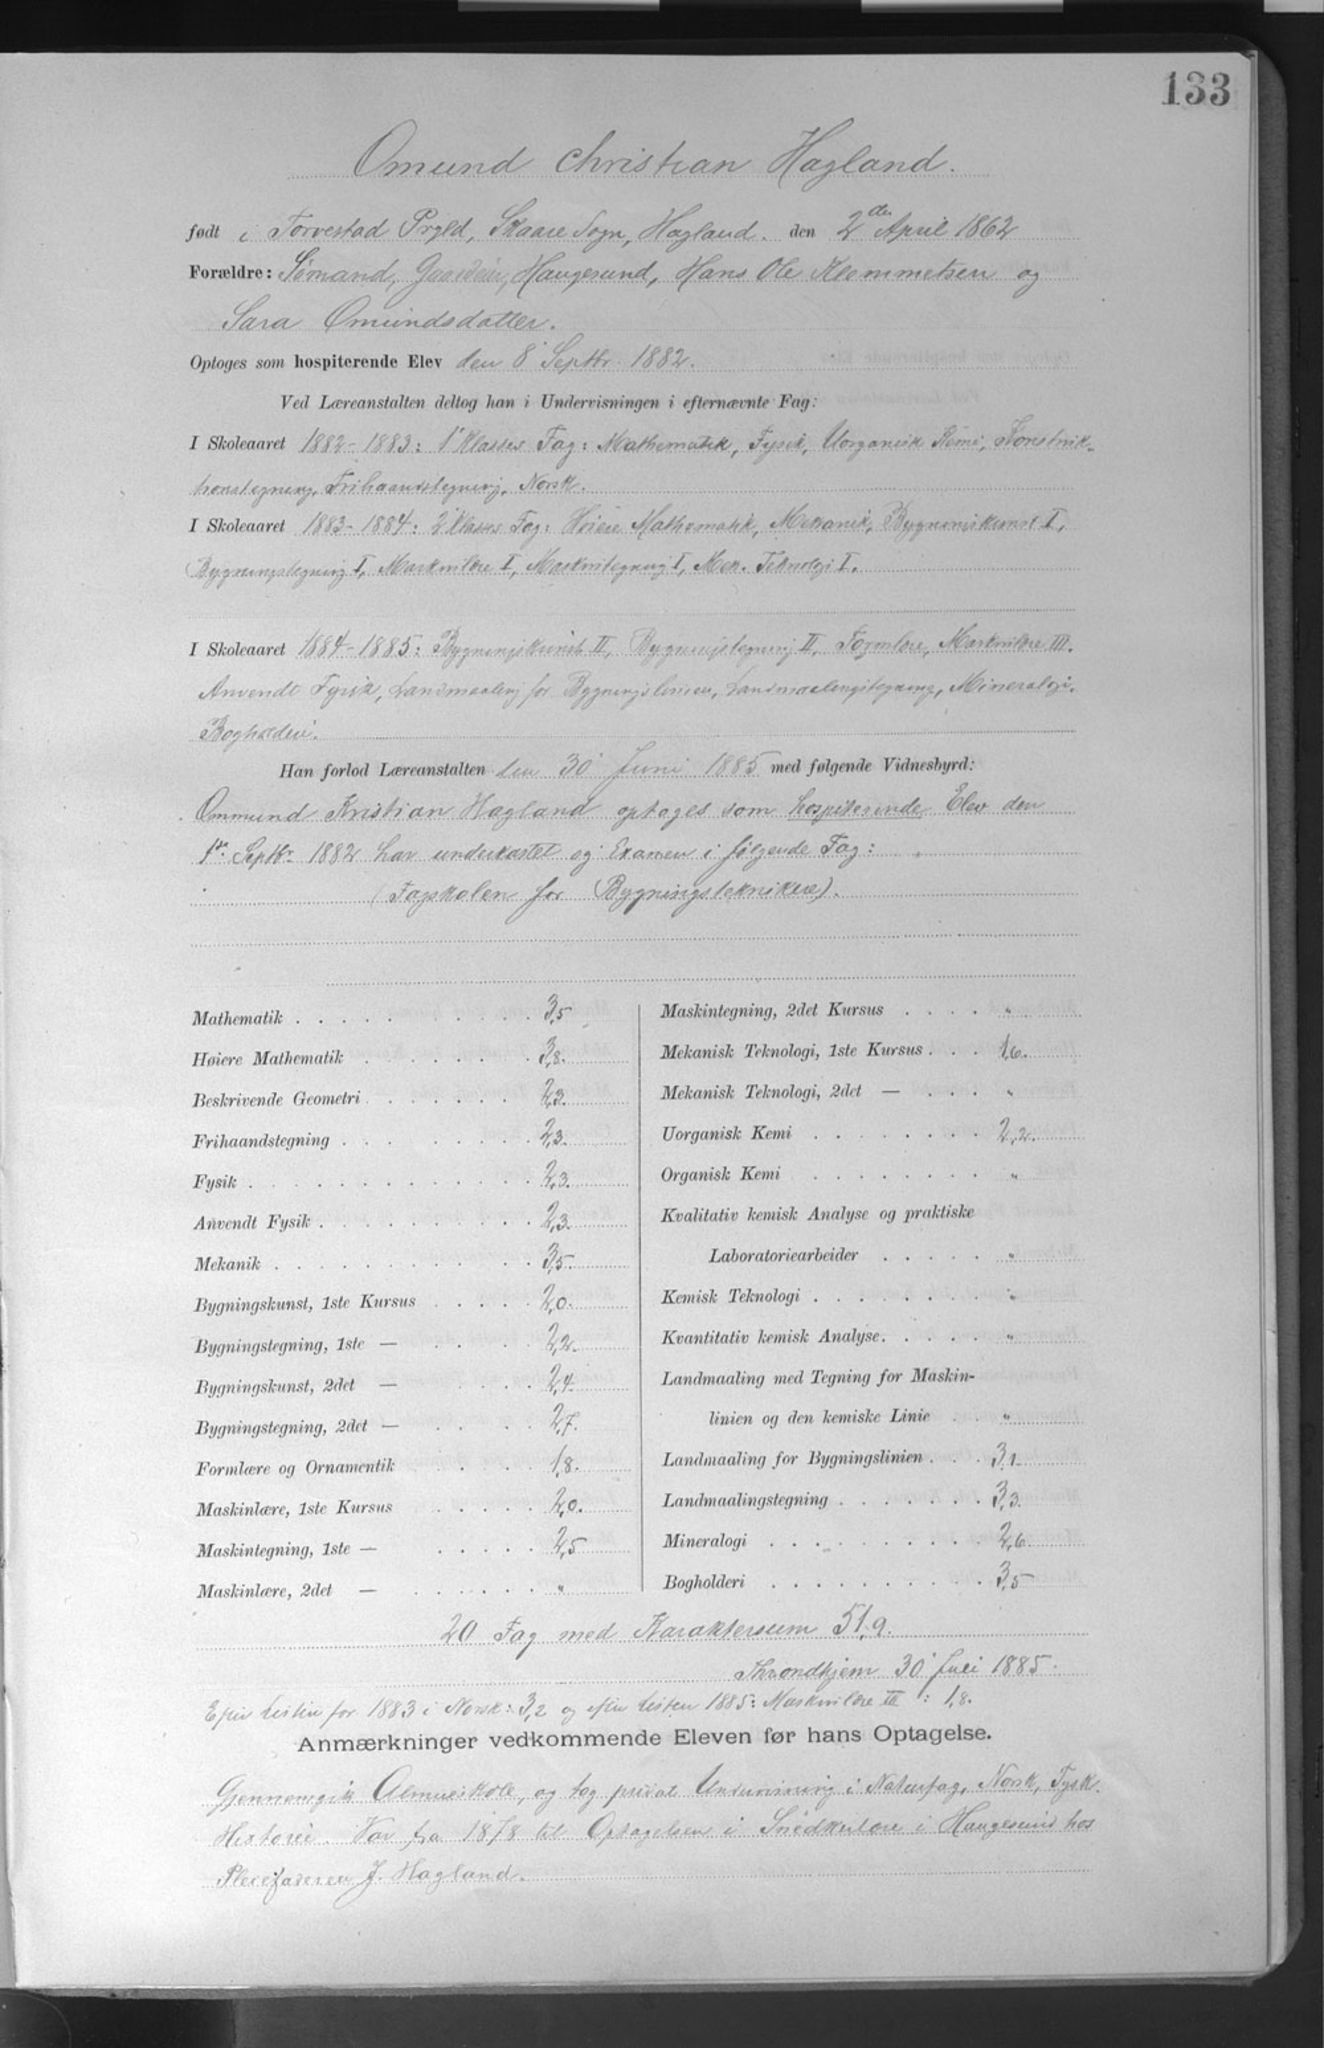 133
Omund Christian Hagland.
født i Torvestad Prgld, Skaare Sogn, Hagland. den 2den April 1862
Forældre: Sømand, Haugesund, Hans Ole Klemmetsen og
Sara Omundsdatter.
Optoges som hospiterende Elev den 8' Septbr. 1882.
Ved Læreanstalten deltog han i Undervisningen i efternævnte Fag:
I Skoleaaret 1882-1883: 1' Klasses Fag: Mathematik, Fysik, Uorganisk Kemi, Konstruk-
tionstegning, Frihaandstegning, Norsk.
I Skoleaaret 1883-1884: 2' Klasses Fag: Høiere Mathematik, Mekanik, Bygningskunst I,
Bygningstegning I, Maskinlære I, Maskintegning I, Mek. Teknologi I.
I Skoleaaret 1884-1885: Bygningskunst II, Bygningstegning II, Formlære, Maskinlære III.
Anvendt Fysik, Landmaaling for Bygningslinien, Landmaalingstegning, Mineralogi.
Bogholderi.
Han forlod Læreanstalten den 30' Juni 1885 med følgende Vidnesbyrd:
Ommund Kristian Hagland optoges som hospiterende Elev den
1ste Septbr. 1882 har underkastet sig Examen i følgende Fag:
(Fagskolen for Bygningsteknikere).
Mathematik 3,5
Høiere Mathematik 3,8.
Beskrivende Geometri 2,3.
Frihaandstegning 2,3.
Fysik 2,3.
Anvendt Fysik 2,3.
Mekanik 3,5.
Bygningskunst, 1ste Kursus 2,0.
Bygningstegning, 1ste — 2,2.
Bygningskunst, 2det — 2,4.
Bygningstegning, 2det — 2,7.
Formlære og Ornamentik 1,8.
Maskinlære, 1ste Kursus 2,0.
Maskintegning, 1ste — 2,5
Maskinlære, 2det — "
Maskintegning, 2det Kursus "
Mekanisk Teknologi, 1ste Kursus 1,6.
Mekanisk Teknologi, 2det — "
Uorganisk Kemi 2,2.
Organisk Kemi "
Kvalitativ kemisk Analyse og praktiske
Laboratoriearbeider "
Kemisk Teknologi "
Kvantitativ kemisk Analyse. "
Landmaaling med Tegning for Maskin-
linien og den kemiske Linie "
Landmaaling for Bygningslinien 3,1.
Landmaalingstegning 3,3.
Mineralogi 2,6.
Bogholderi 3,5
20 Fag med Karaktersum 51,9.
Throndhjem 30' Juli 1885.
Efter Listen for 1883 i Norsk: 3,2 og efter Listen 1885: Maskinlære III: 1,8.
Anmærkninger vedkommende Eleven før hans Optagelse.
Gjennemgik Almueskole, og tog privat Undervisning i Naturfag, Norsk, Tysk.
Historie. Var fra 1878 til Optagelsen i Snedkerlære i Haugesund hos
J. Hagland.